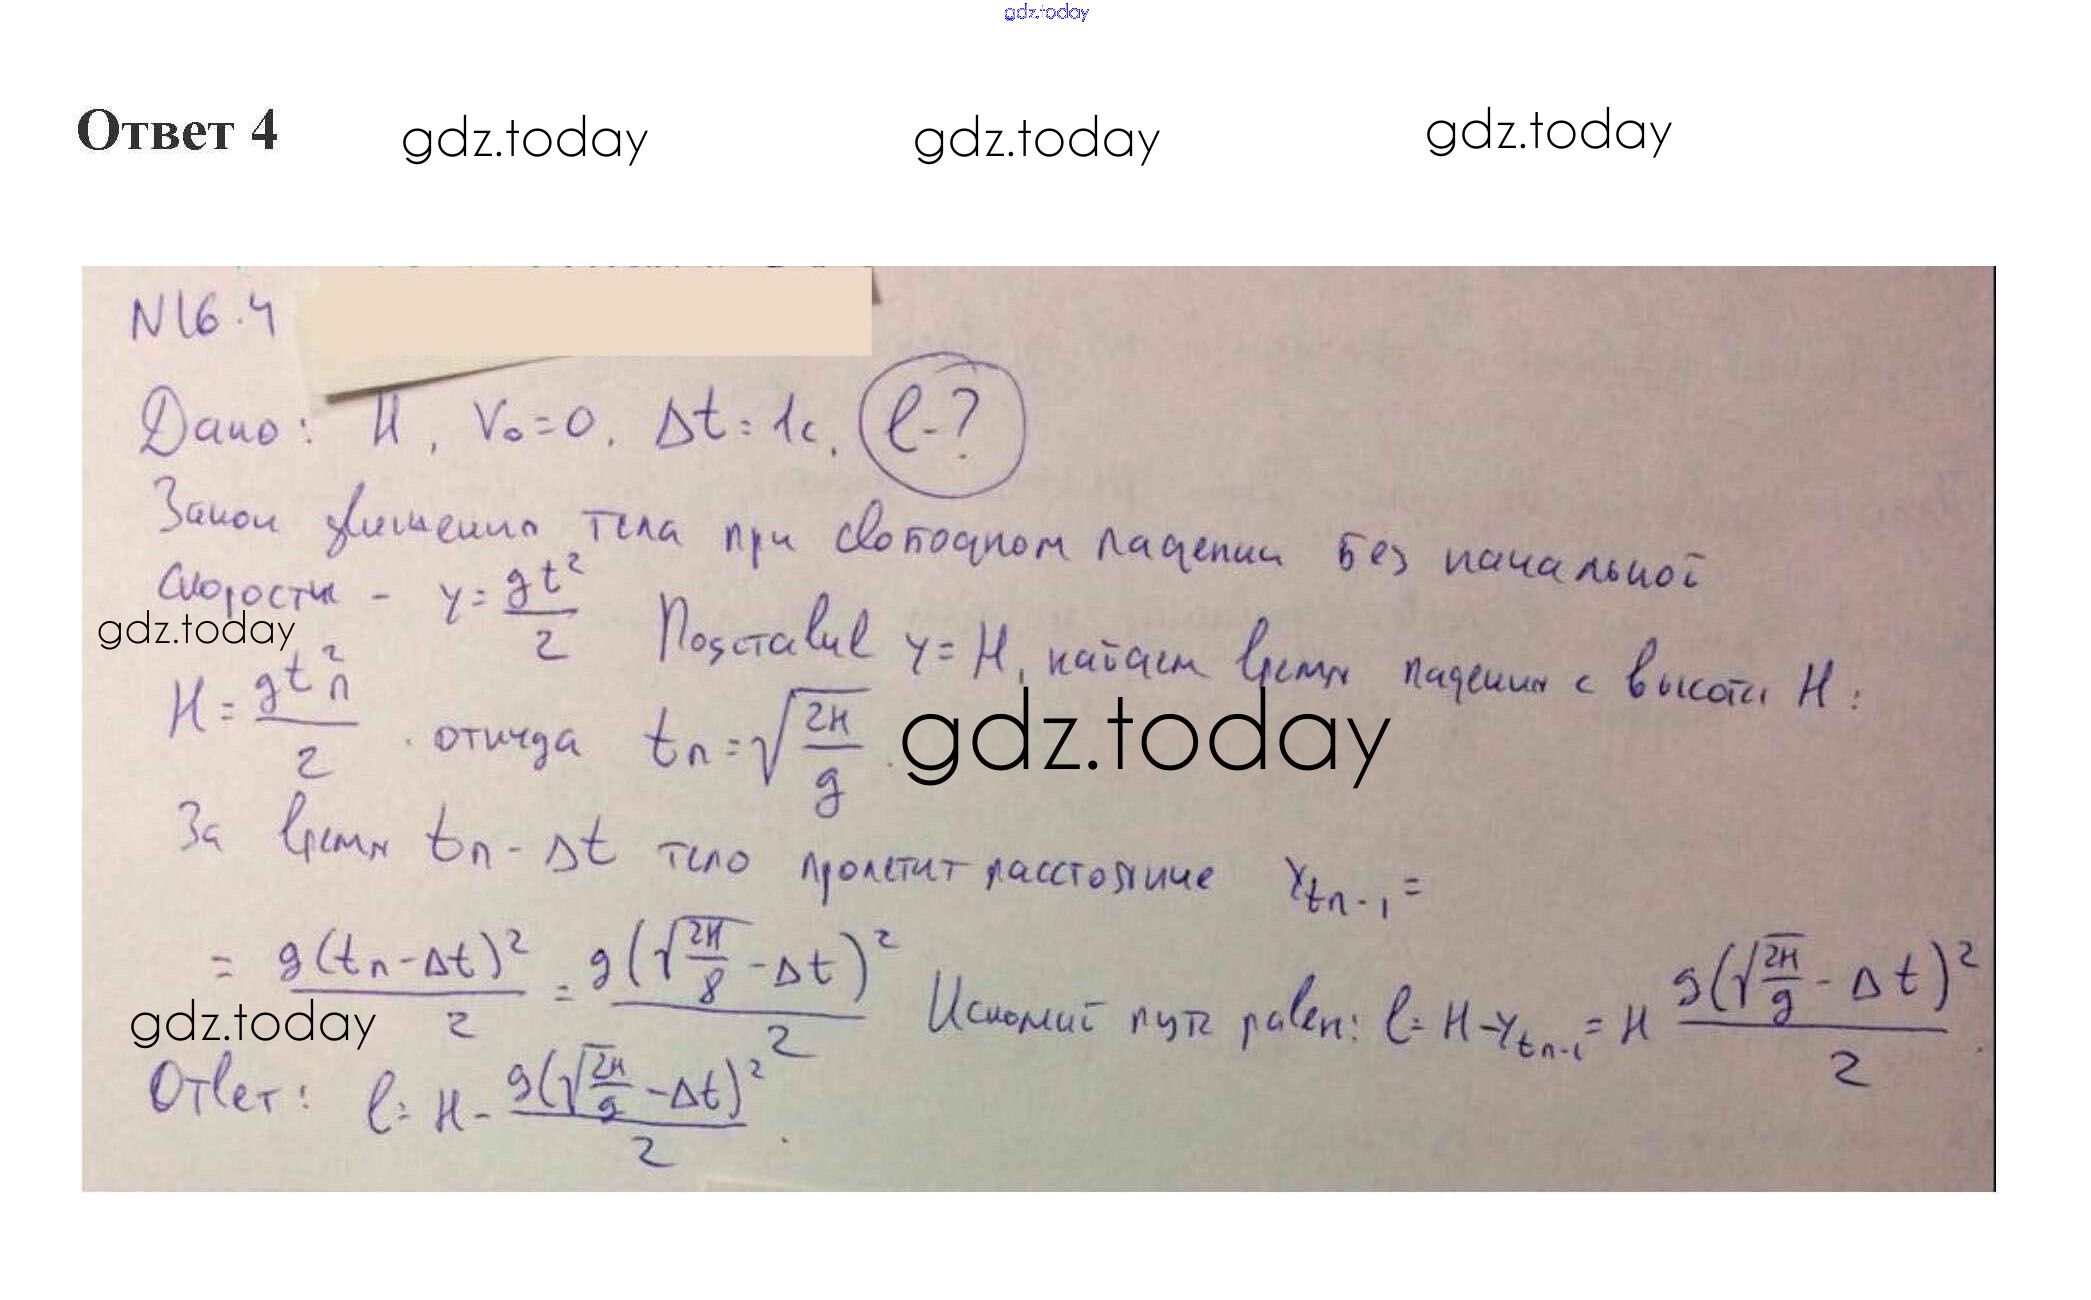 gdz.today
Ответ 4 gdz.today gdz.today gdz.today
N16.4
Дано: H, V₀=0, Δt=1с, l-?
Закон движения тела при свободном падении без начальной
скорости - y = gt²/2 Подставив y=H, найдем время падения с высоты H:
gdz.today
H = gtп²/2 . откуда tп = √(2H/g) .
gdz.today
За время tп-Δt тело пролетит расстояние Ytп-1 =
= g(tп-Δt)²/2 = g(√(2H/8)-Δt)²/2 Искомый путь равен: l= H-Ytп-1 = H g(√(2H/g)-Δt)²/2 .
gdz.today
Ответ: l= H- g(√(2H/g)-Δt)²/2 .